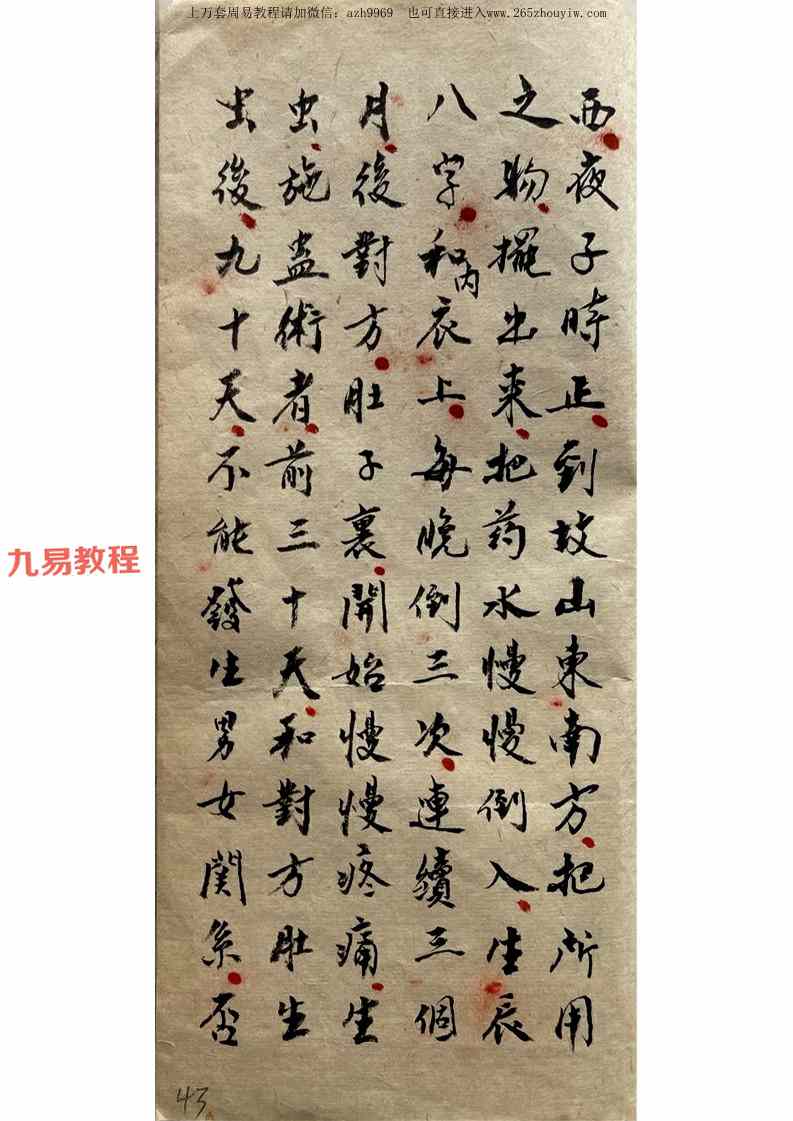 上万套周易教程请加微信: azh9969 也可直接进入www.265zhouyiw.com
西夜子時正到坟山東南方把所用
之物擺出来把药水慢慢倒入生辰
八字和内衣上每晚倒三次連續三個
月後對方肚子裏開始慢慢疼痛生
虫施蛊術者前三十天和對方肚生
虫後九十天不能發生男女関系否
九易教程
43